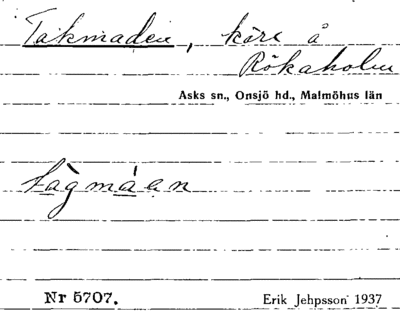 Takmaden, kärr å
Rökaholm
Asks sn., Onsjö hd., Malmöhus län
tàgmáan
Nr 5707. Erik Jehpsson 1937